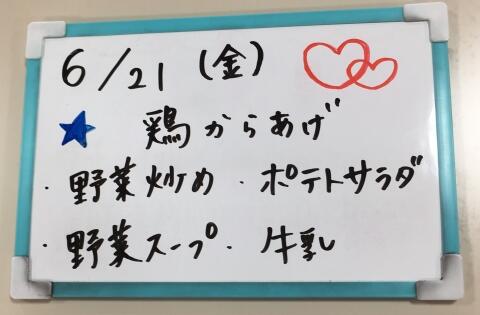 6/21(金)
★ 鶏からあげ
・野菜炒め ・ポテトサラダ
・野菜スープ ・牛乳